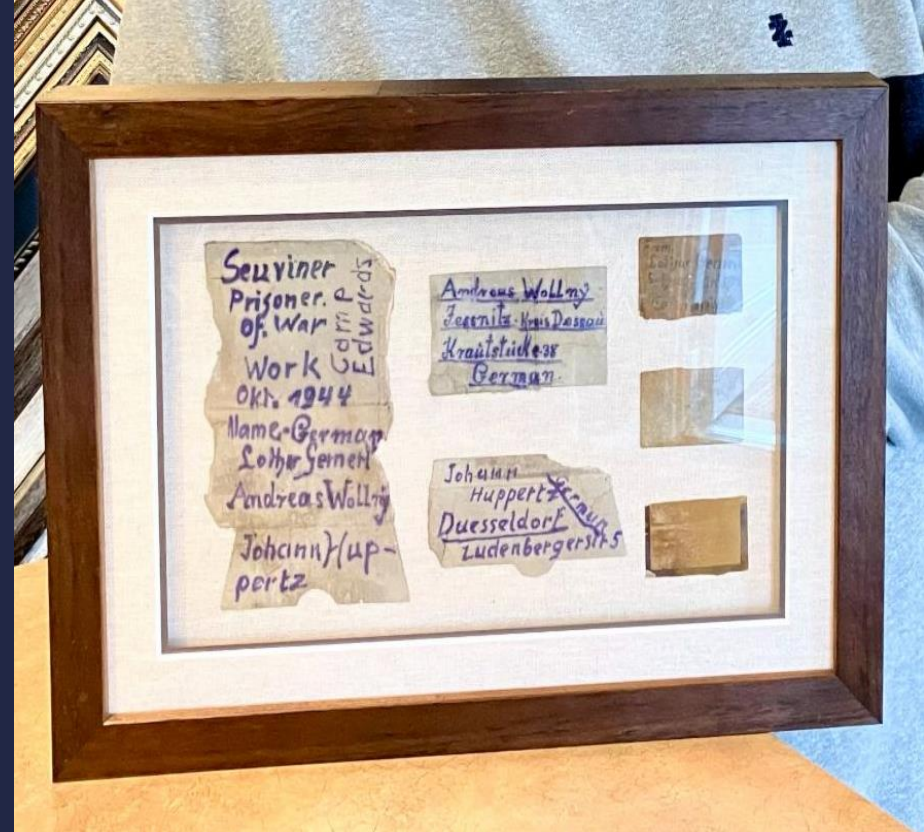 Seuviner
Prisoner.
of. War
Work
Okt. 1944
Camp
Edwards
Name-German
Lothar
Andreas Wollny
Johann Hup-
pertz
Andreas Wollny
Jessnitz-Kreis Dessau
Krautstücke 38
German.
Johann
Huppertz
German
Duesseldorf
Ludenbergerstr 5